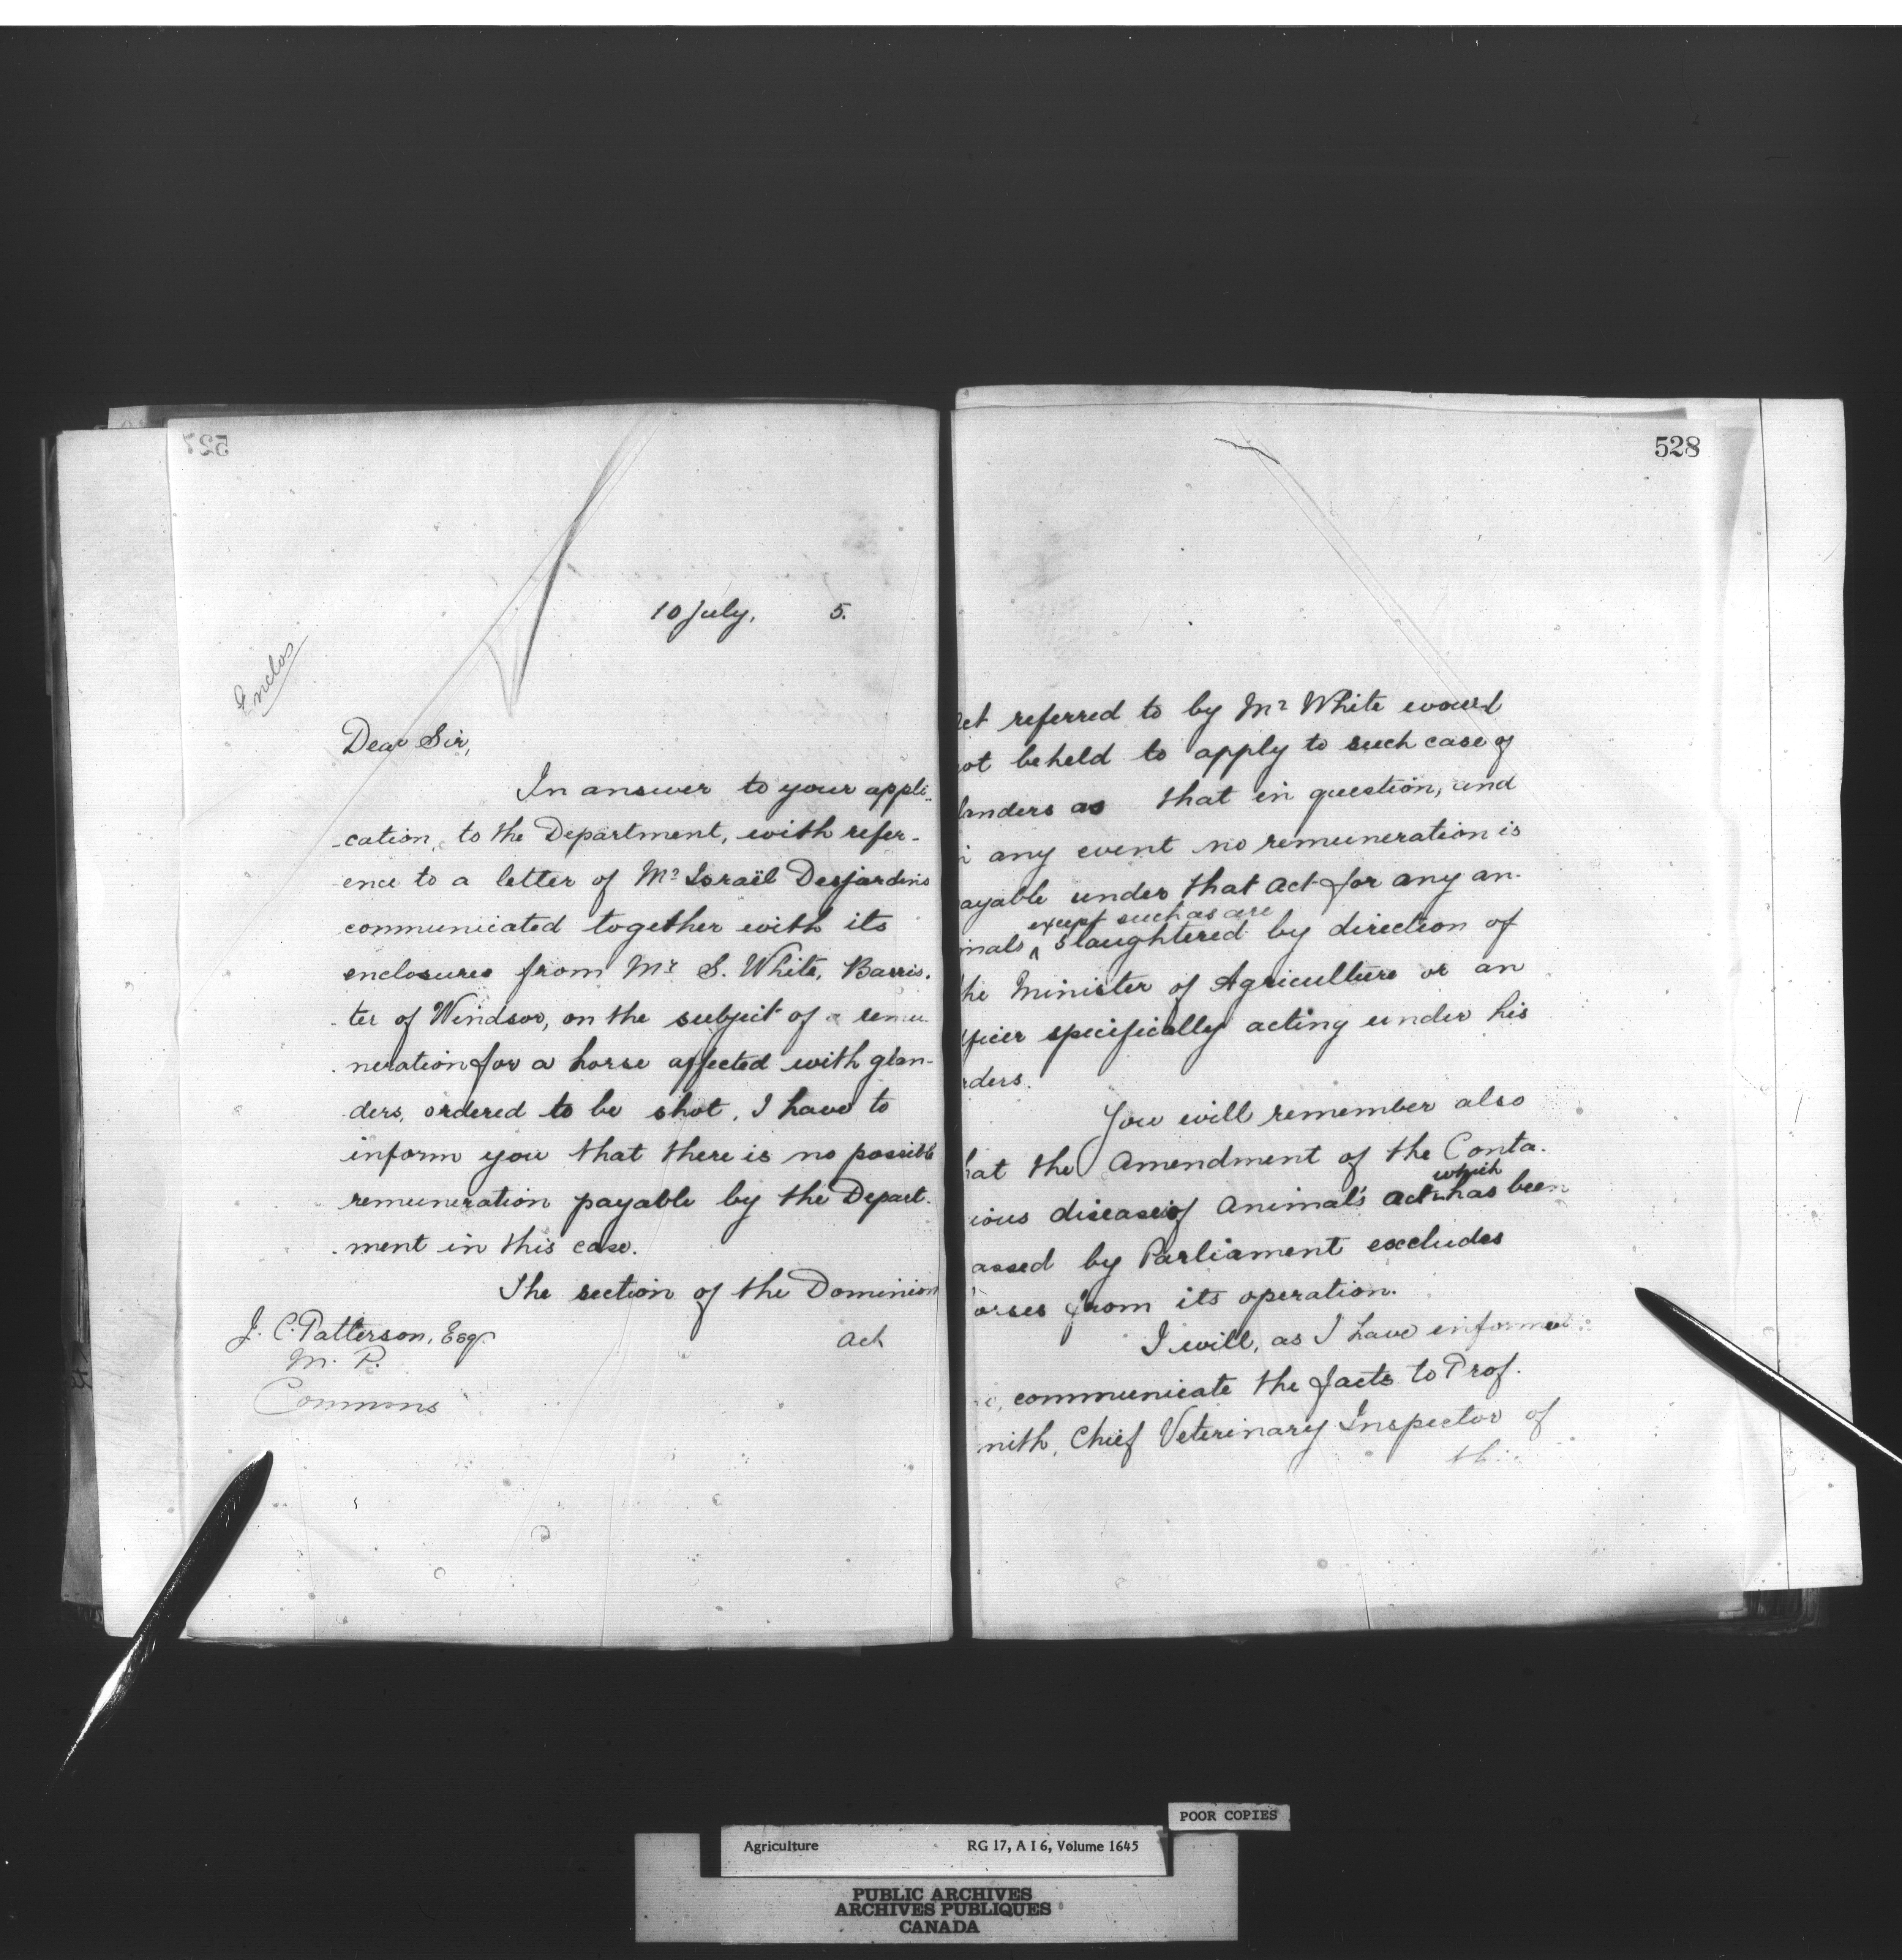 527
10 July, 5.
Enclos
Dear Sir,
In answer to your appli-
-cation, to the Department, with refer-
-ence to a letter of Mr Israël Desjardins
communicated together with its
enclosures from Mr S. White, Barris.
-ter of Windsor, on the subject of a remu
-neration for a horse affected with glan-
-ders, ordered to be shot, I have to
inform you that there is no possible
remuneration payable by the Depart-
-ment in this case.
The section of the Dominion
J. C. Patterson, Esq.
M. P.
Commons
Act
528
ct referred to by Mr White would
ot be held to apply to such case of
landers as that in question, and
any event no remuneration is
ayable under that Act for any an-
except such as are
mals ^ slaughtered by direction of
he Minister of Agriculture or an
fficer specifically acting under his
rders.
You will remember also
hat the Amendment of the Conta-
which
ious disease of Animal's Act has been
assed by Parliament excludes
orses from its operation.
I will, as I have informed
communicate the facts to Prof.
mith, Chief Veterinary Inspector of
th
POOR COPIES
Agriculture RG 17, A I 6, Volume 1645
PUBLIC ARCHIVES
ARCHIVES PUBLIQUES
CANADA